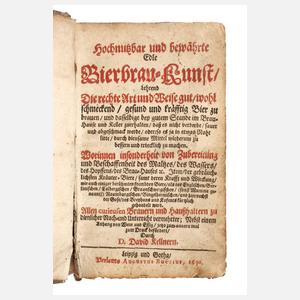 Hochnutzbar und bewährte
Edle
Bierbrau-Kunst/
lehrend
Die rechte Art und Weise gut/wohl
schmeckend/ gesund und kräfftig Bier zu
brauen/ und dasselbige bey gutem Stande im Brau-
Hause und Keller zuerhalten/ daß es nicht verderbe/ sauer
und abgeschmack werde/ oder so es ja in etwas Noht
litte/ durch diensame Mittel wiederum zu
bessern und trincklich zu machen.
Worinnen insonderheit von Zubereitung
und Beschaffenheit des Maltzes/ des Wassers/
des Hopffens/ des Brau-Hauses &c. Item/ der gebräuch-
lichsten Kräuter-Biere/ samt deren Krafft und Würckung/
gehandelt wird.
Allen curieusen Brauern und Haußhaltern zu
dienlicher Nachricht
Anhang von Wein und Eßig/
zum Druck befördert/
Durch
D. David Kellnern.
Leipzig und Gotha/
Verlegts Augustus Boetius, 1690.